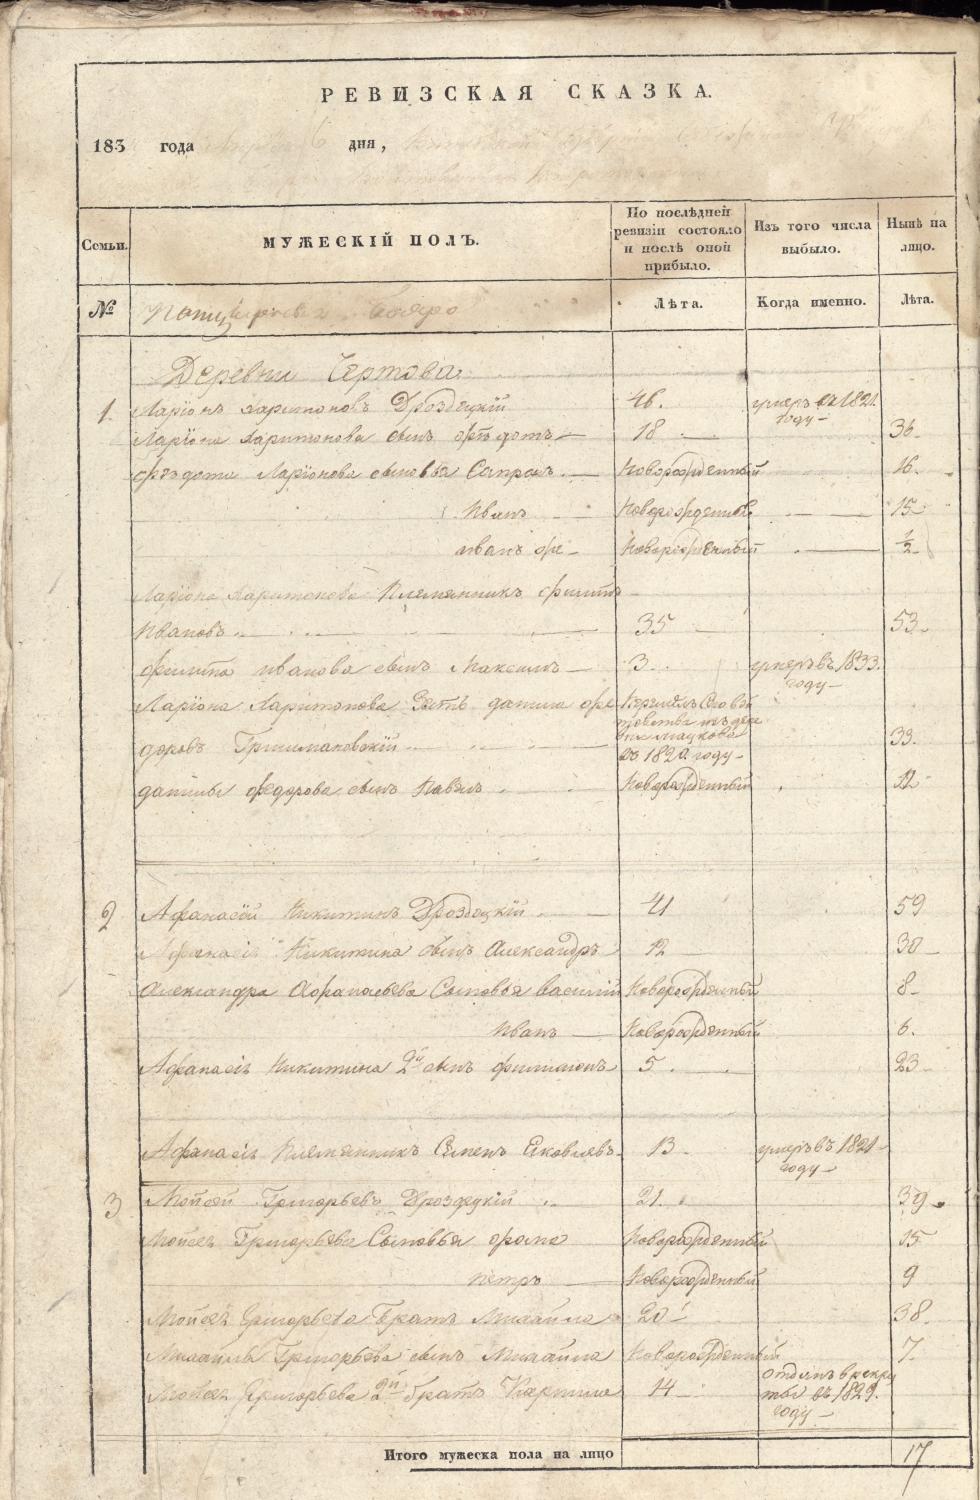 РЕВИЗСКАЯ СКАЗКА.
183 года Апреля 6 дня,
Семьи. МУЖЕСКІЙ ПОЛЪ. По послѣдней ревизіи состояло и послѣ оной прибыло. Изъ того числа выбыло. Нынѣ на лицо.
№ Лѣта. Когда именно. Лѣта.
Деревни Чертова
1. Ларіонъ Харитоновъ Дроздецкій 46. умеръ въ 1821 году
Ларіона Харитонова сынъ Ѳедотъ 18 36.
Ѳедота Ларіонова сыновья Сапронъ Новорожденный 16.
Иванъ Новорожденный 15
Иванъ Новорожденный 1/2
Ларіона Харитонова Племянникъ Филипъ
Ивановъ 35 53
Филипа Иванова сынъ Максимъ 3. умеръ въ 1833. году
Ларіона Харитонова Зять Данила Фе
доровъ въ 1820 году 33.
Данилы Федорова сынъ Павелъ Новорожденный 12
2 Афанасій Никитинъ Дроздецкій 41 59
Афанасія Никитина сынъ Александръ 12 30
Александра Афанасьева Сыновья Василий Новорожденный 8
Иванъ Новорожденный 6.
Афанасія Никитина 2й сынъ Филимонъ 5 23
Афанасія Племянникъ Семенъ Яковлевъ 13 умеръ въ 1821 году
3 Мойсей Григорьевъ Дроздецкій 21. 39
Мойсея Григорьева Сыновья Фома Новорожденный 15
Петръ Новорожденный 9
Мойсея Григорьева Братъ Михайла 20 38
Михайлы Григорьева сынъ Михайла Новорожденный 7.
Мойсея Григорьева 2й Братъ 14 отданъ в рекруты въ 1829. году
Итого мужеска пола на лицо 17